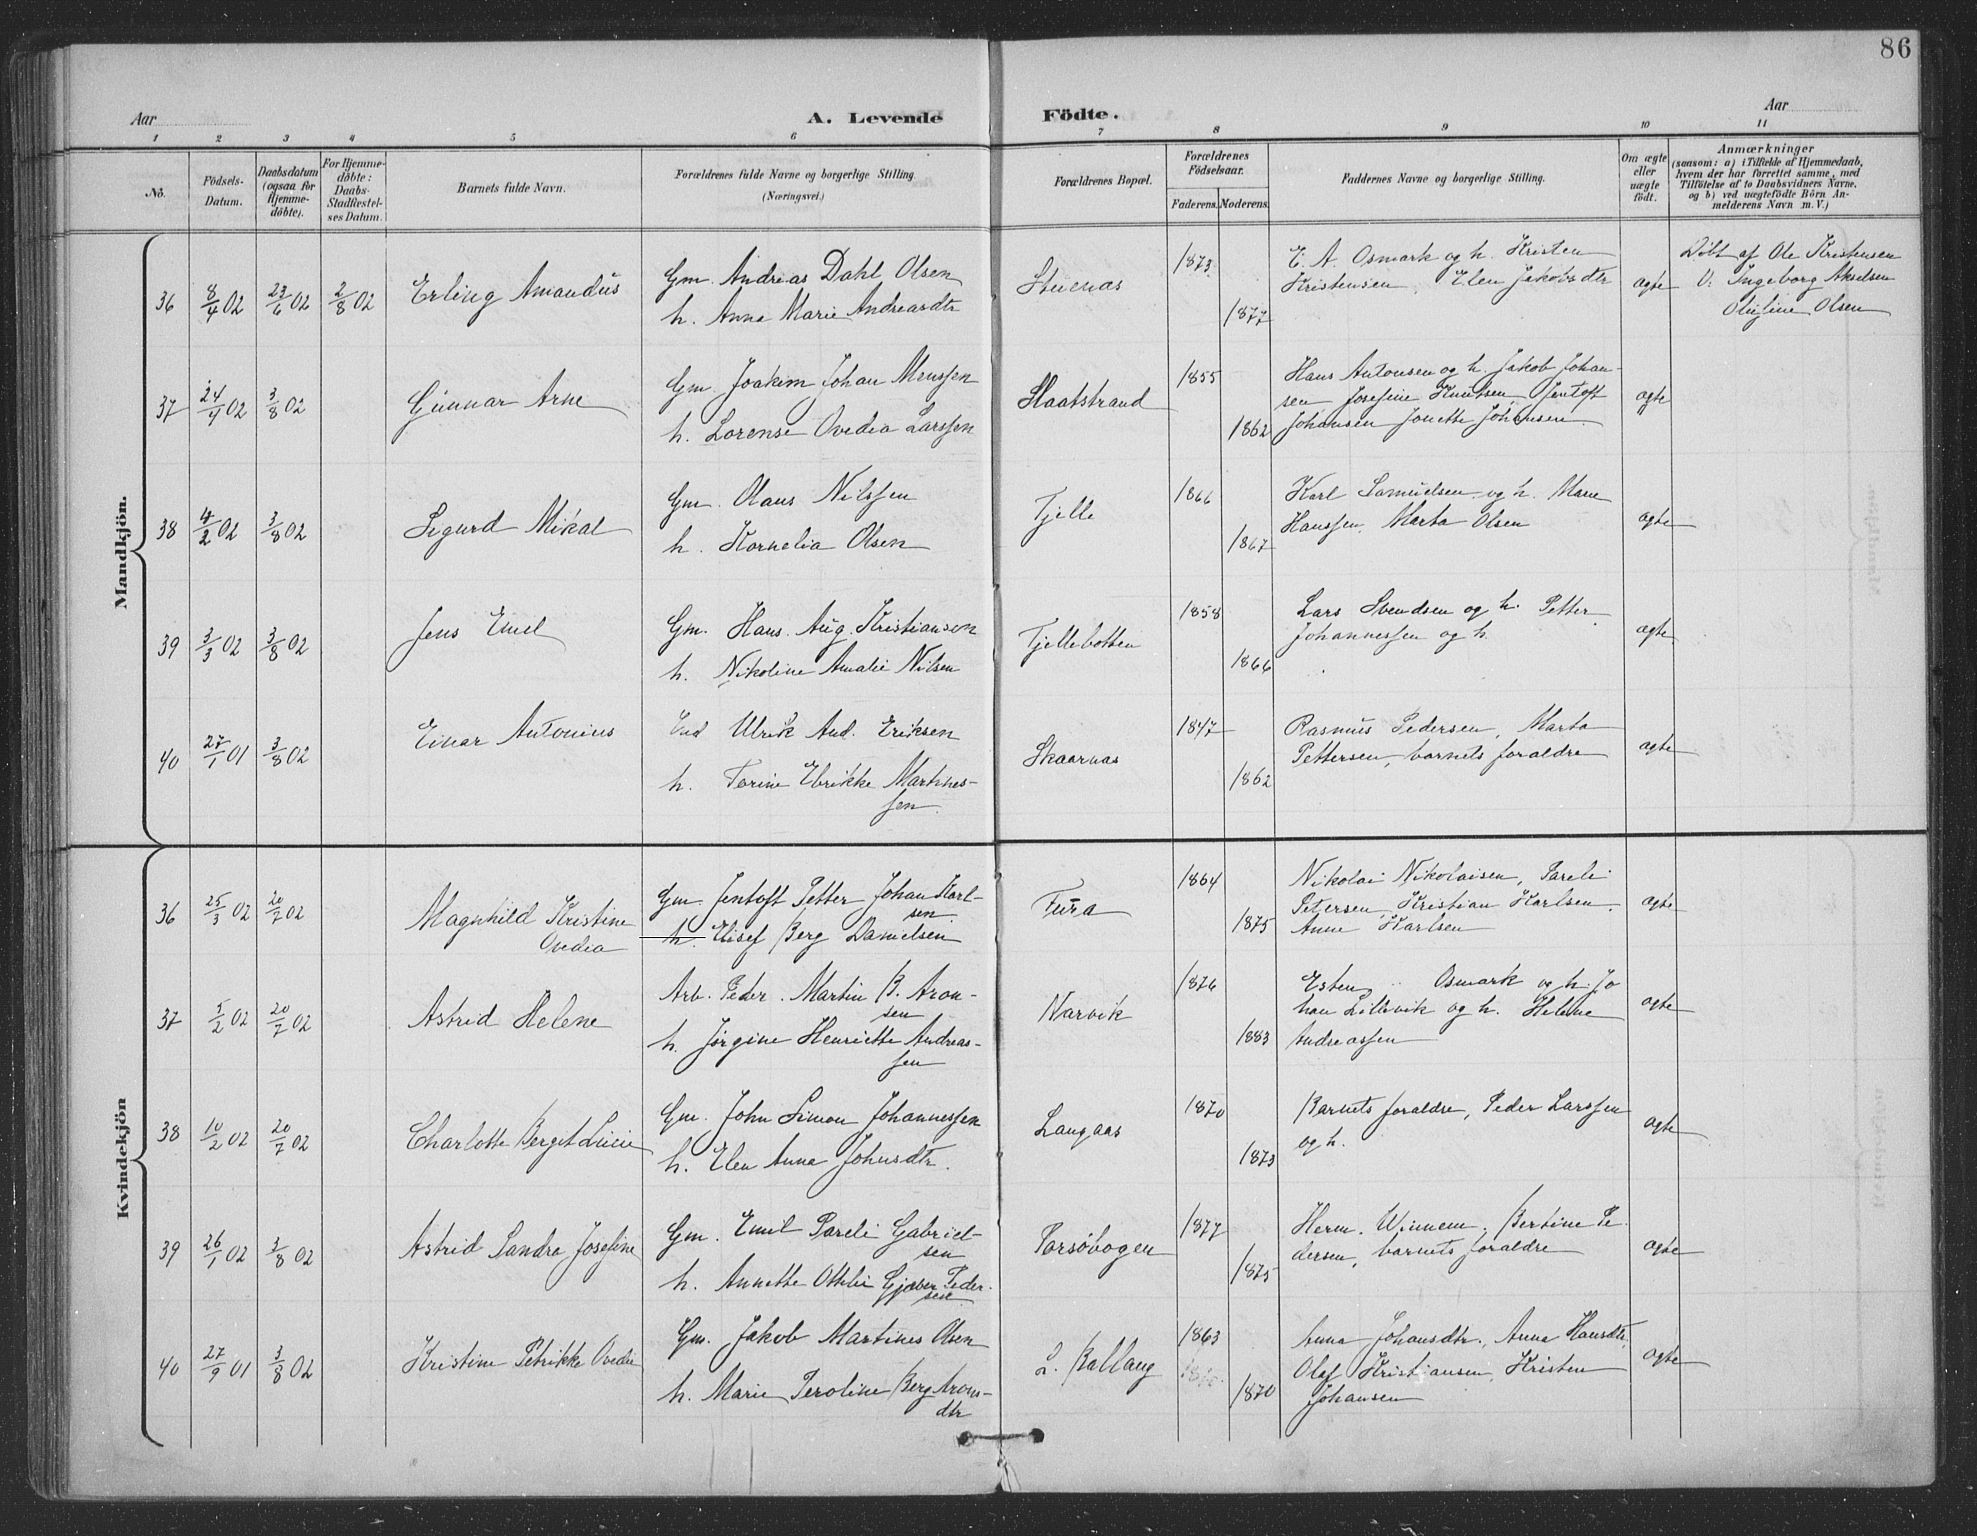 86
Aar
A. Levende
Födte.
Aar
1 2 3 4 5 6 7 8 9 10 11
No.
Födsels-
Datum.
Daabsdatum
(ogsaa for
Hjemme-
döbte).
For Hjemme-
döbte:
Daabs-
Stadfæstel-
ses Datum.
Barnets fulde Navn.
Forældrenes fulde Navne og borgerlige Stilling
(Næringsvei.)
Forældrenes Bopæl.
Forældrenes
Födselsaar.
Faderens. Moderens.
Faddernes Navne og borgerlige Stilling.
Om ægte
eller
uægte
födt.
Anmærkninger
(saasom: a) i Tilfælde af Hjemmedaab,
hvem der har forrettet samme, med
Tilföielse af to Daabsvidners Navne,
og b) ved uægtefödte Börn An-
melderens Navn m. V.)
Mandkjön.
36 8/4 02 23/6 02 2/8 02 Erling Amandus
Gm. Andreas Dahl Olsen
h. Anna Marie Andreasdtr
Stuenas
1873
1877
E. A. Osmark og h. Kristen
Kristensen, Elen Jakobsdtr
agte
Döbt af Ole Kristensen
V: Ingeborg Akselsen
Oligine Olsen
37 24/4 02 3/8 02 Gunnar Arne
Gm. Joakim Johan Monssen
h. Lorense Ovedia Larssen
Slaatstrand
1855
1862
Hans Antonsen og h. Jakob Johan-
sen Josefine Knutsen, Jentoft
Johansen Jonette Johansen.
agte
38 4/2 02 3/8 02 Sigurd Mikal
Gm. Olaus Nilssen
h. Kornelia Olsen
Tjelle
1866
1867
Karl Samuelsen og h. Mane
Hanssen, Marta Olsen
agte
39 3/3 02 3/8 02 Jens Emel
Gm. Hans. Aug. Kristiansen
h. Nikoline Amalie Nilsen
Tjellebotten
1858
1866
Lars Svendsen og h. Petter
Johannessen og h.
agte
40 27/1 01 3/8 02 Einar Antonius
Ind Ulrik And. Eriksen
h. Torine Elrikke Martines-
sen.
Skaarnas
1847
1862
Rasmus Pedersen, Marta
Pettersen, barnets foraldre
agte
Kvindekjön
36 25/3 02 20/7 02 Magnhild Kristine
Ovedia
Gm. Jentoft Petter Johan Karl-
sen
h. Elisef Berg Danielsen
Furа
1864
1875
Nikolai Nikolaisen, Pareli
Petersen, Kristian Karlsen,
Anne Karlsen
agte
37 5/2 02 20/7 02 Astrid Helene
Arb. Peder. Martin B. Aron-
sen
h. Jörgine Henriette Andreas-
sen
Narvik
1876
1883
Esten Osmark og h. Jo
han Lillevik og h. Helene
Andreassen
agte
38 10/2 02 20/7 02 Charlotte Bergit Lucie
Gm. John Simon Johannessen
h. Elen Anna Johnsdtr.
Langaas
1870
1873
Barnets foraldre, Peder Larssen
og h.
agte
39 26/1 02 3/8 02 Astrid Sandra Josefine
Gm. Emil Pareli Gabriel-
sen
h. Annette Ottelie Gjæver Peder-
sen
Porsöbogen
1877
1875
Herm. Winnem. Bertine Pe
dersen, barnets foraldre
agte
40 27/9 01 3/8 02 Kristine Petrikke Ovedie
Gm. Jakob Martines Olsen
h. Marie Peroline Berg Arons-
dtr
L. Ballang
1863
1870
Anna Johansdtr., Anna Hansdtr.
Olaf Kristiansen, Kristen
Johansen
agte